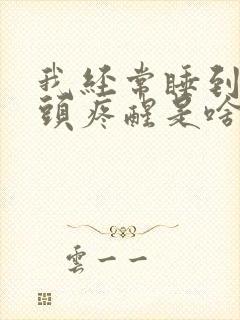 我经常睡到
頭疼醒是啥
雲一一